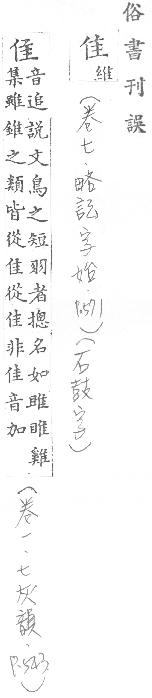 俗書刊誤
隹 維
(卷七·略記字始·P.571)(石鼓字)
隹 音追說文鳥之短羽者揔名如雎雖雞
集雖錐之類皆從隹從佳非佳音加
(卷一·七灰韻·P.543)